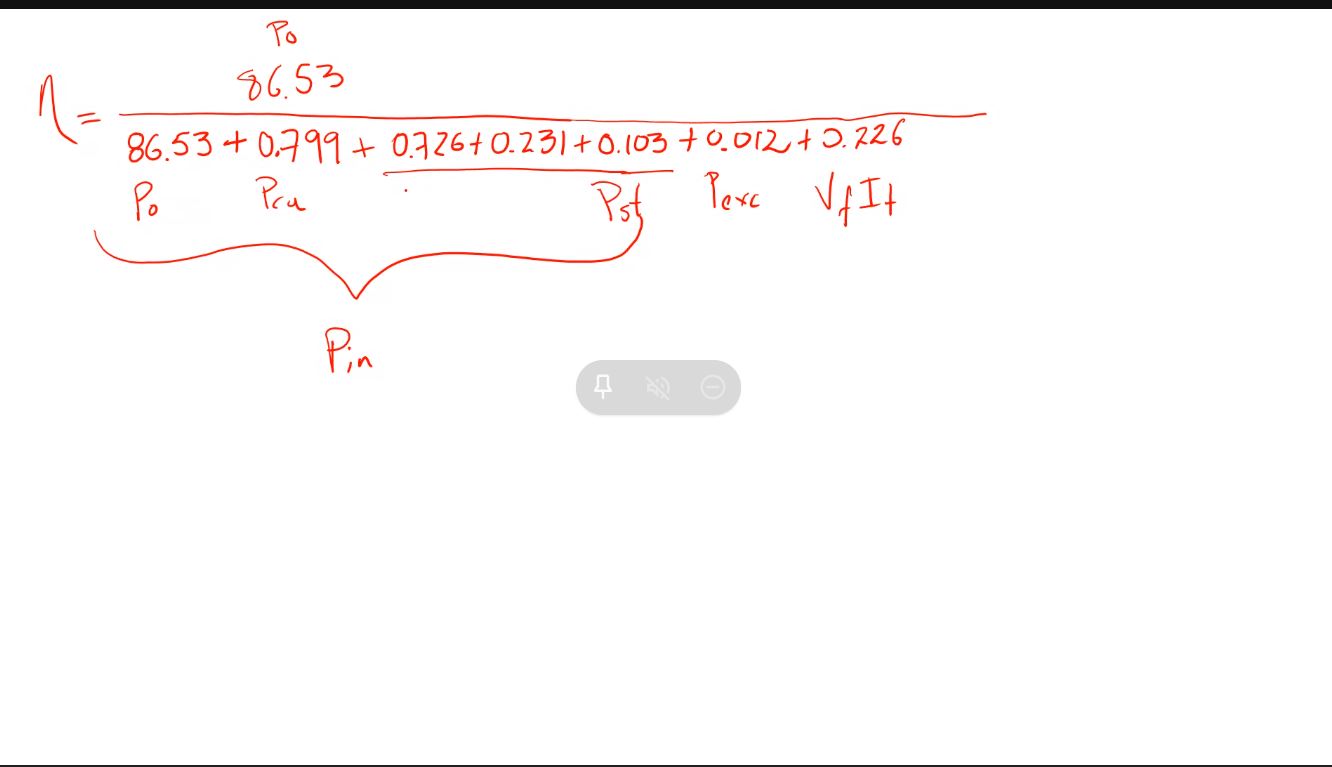 Po
86.53
η =
86.53 + 0.799 + 0.726 + 0.231 + 0.103 + 0.012 + 0.226
Po Pcu Pst Pexc VfIf
Pin